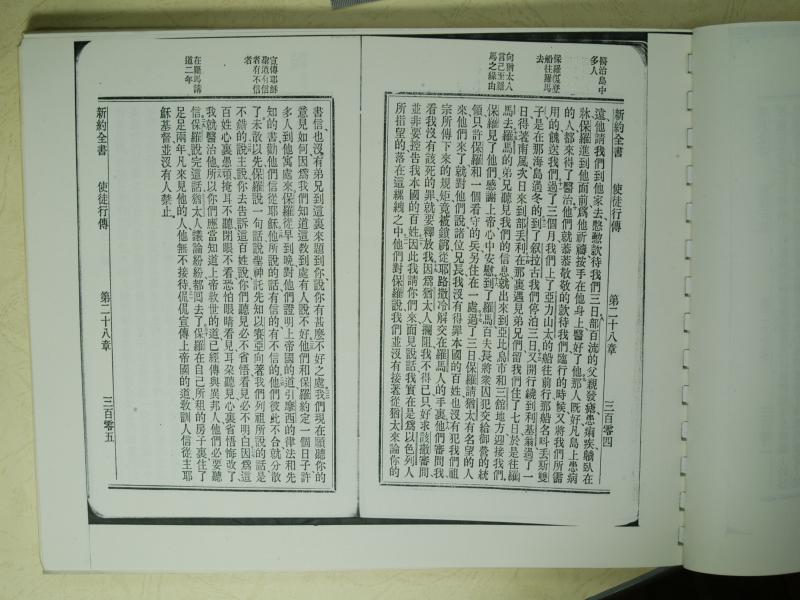 醫治島中
多人
保羅復登
船往羅馬
去
向猶太人
言己至羅
馬之緣由
新約全書 使徒行傳 第二十八章 三百零四
遠他請我們到他家去慇懃款待我們三日部百流的父親發瘧患痢疾躺臥在
牀保羅進到他面前爲他祈禱按手在他身上醫好了他那人既好凡島上患病
的人都來得了醫治他們就恭恭敬敬的款待我們臨行的時候又將我們所需
用的餽送我們過了三個月我們上了亞力山太的船往前行那船名呌丟斯雙
子是在那海島過冬的到了叙拉古我們停泊三日又開行繞到利基翁過了一
日得著南風次日來到部丟利在那裏遇見弟兄們留我們住了七日於是往羅
馬去羅馬的弟兄聽見我們的信息就出來到亞比島市和三館地方迎接我們
保羅見了他們感謝上帝心中安慰到了羅馬百夫長將衆囚犯交給御營的統
領只許保羅和一個看守的兵另住在一處過了三日保羅請猶太有名望的人
來他們來了就對他們說諸位兄長我沒有得罪本國的百姓也沒有犯我們祖
宗所傳下來的規矩竟被鎖綑從耶路撒冷解交在羅馬人的手裏他們審問我
看我沒有該死的罪就要釋放我因爲猶太人攔阻我不得已只好求該撒審問
並非要控告我本國的百姓因此我請你們來面見說話我實在是爲以色列人
所指望的落在這縲絏之中他們對保羅說我們並沒有接著從猶太來論你的
宣傳耶穌
者有不信
者
在羅馬講
道二年
書信也沒有弟兄到這裏來題到你說你有甚麼不好之處我們現在願聽你的
意見如何因爲我們知道這敎到處有人說不好他們和保羅約定一個日子許
多人到他寓處來保羅從早到晚對他們證明上帝國的道引摩西的律法和先
知的書勸他們信從耶穌他所說的話有信的有不信的他們彼此不合就分散
了未散以先保羅說一句話說聖神託先知以賽亞向著我們列祖所說的話是
不錯的說主說你去告訴這百姓說你們聽見必不省悟看見必不明白因爲這
百姓心裏愚頑掩耳不聽閉眼不看恐怕眼睛看見耳朶聽見心裏省悟悔改了
我就醫治他們所以你們應當知道上帝救世的道已經傳與異邦人他們必要聽
信保羅說完這話猶太人議論紛紛都回去了保羅在自己所租的房子裏住了
足足兩年凡來見他的人他無不接待侃侃宣傳上帝國的道敎訓人信從主耶
穌基督並沒有人禁止
新約全書 使徒行傳 第二十八章 三百零五